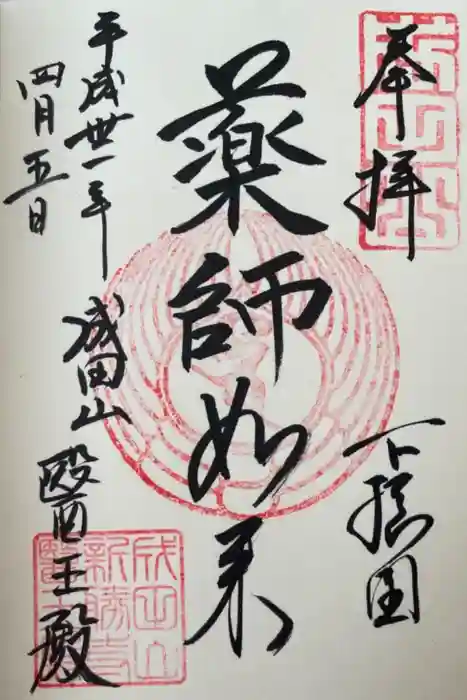 奉拝
下総国
薬師如来
平成卅一年
四月五日
成田山
醫王殿
成田山
新勝寺